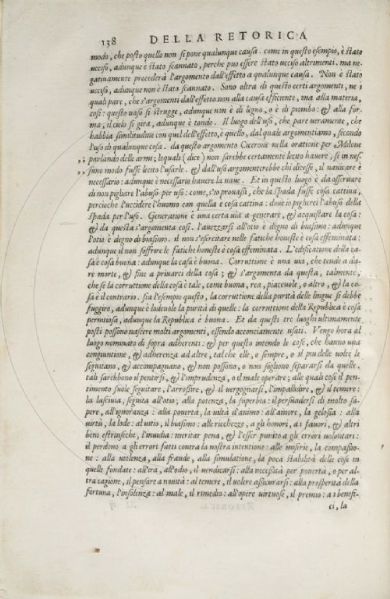 138 DELLA RETORICA
modo, che posto quello non si pone qualunque causa. come in questo esempio, è stato
ucciso, adunque è stato scannato, perche puo essere stato ucciso altrimenti. ma ne-
gatiuamente procederà l'argomento dall'effetto a qualunque causa. Non è stato
ucciso, adunque non è stato scannato. Sono oltra di questo certi argomenti, ne i
quali pare, che s'argomenti dall'effetto non alla causa efficiente, ma alla materia,
cosi: questo uaso si strugge, adunque non è di legno, o è di piombo: & alla for-
ma, il cielo si gira, adunque è tondo. Il luogo dell'uso, che pare ueramente, che
habbia similitudine con quel dell'effetto, è quello, dal quale argomentiamo, secondo
l'uso di qualunque cosa. da questo argomento Cicerone nella oratione per Milone
parlando delle armi; lequali (dice) non sarebbe certamente lecito hauere, se in nes-
suno modo fusse lecito l'usarle. & dall'uso argomenterebbe chi dicesse, il nauicare è
necessario: adunque è necessario hauere la naue. Et in questo luogo è da auertire
di non pigliare l'abuso per uso: come, s'io prouassi, che la spada fusse cosa cattiua,
percioche l'uccidere l'huomo con quella è cosa cattiua: doue io piglierei l'abuso della
spada per l'uso. Generatione è una certa uia a generare, & acquistare la cosa:
& da questa s'argomenta cosi. l'auezzarsi all'ocio è degno di biasimo: adunque
l'ocio è degno di biasimo. il non s'esercitare nelle fatiche honeste è cosa effeminata:
adunque il non soffrire le fatiche honeste è cosa effeminata. L'edificatione della ca-
sa è cosa buona: adunque la casa è buona. Corruttione è una uia, che tende a da-
re morte, & fine a priuarci della cosa: & s'argomenta da questa, talmente,
che se la corruttione della cosa è tale, come buona, rea, piaceuole, o altro, & la co-
sa è il contrario. sia l'esempio questo, la corruttione della purità delle lingue si debbe
fuggire, adunque è lodeuole la purità di quelle: la corrottione della Republica è cosa
perniciosa, adunque la Republica è buona. Et da questi tre luoghi ultimamente
posti possono nascere molti argomenti, essendo acconciamente usati. Vengo hora al
luogo nominato di sopra adherenti: & per questo intendo le cose, che hanno una
congiuntione, & adherenza ad altre, tal che elle, o sempre, o il piu delle uolte le
seguitano, & accompagnano, & non possono, o non sogliono separarsi da quelle.
tali sarebbono il pentirsi, & l'imprudenza, o al male operare; alle quali cosi il pen-
timento suole seguitare, l'arrossire, & il uergognarsi, l'impallidire, & il temere:
la lasciuia, seguita all'otio; alla potenza, la superbia: il persuadersi di molto sa-
pere, all'ignoranza: alla pouertà, la uiltà d'animo: all'amore, la gelosia: alla
uirtù, la lode: al uitio, il biasimo: alle ricchezze, a gli honori, a i fauori, & altri
beni estrinsechi, l'inuidia: meritar pena, & l'esser punito a gli errori uolontari:
il perdono a gli errori fatti contra la nostra intentione: alle miserie, la compassio-
ne: alla uiolenza, alla fraude, alla simulatione, la poca stabilità delle cose in
quelle fondate: all'ira, all'odio, il uendicarsi: alla necessità per pouertà, o per al-
tra cagione, il pensare a nouità: al temere, il uolere assicurarsi: alla prosperità della
fortuna, l'insolenza: al male, il rimedio: all'opere uirtuose, il premio: a i benefi-
ci, la